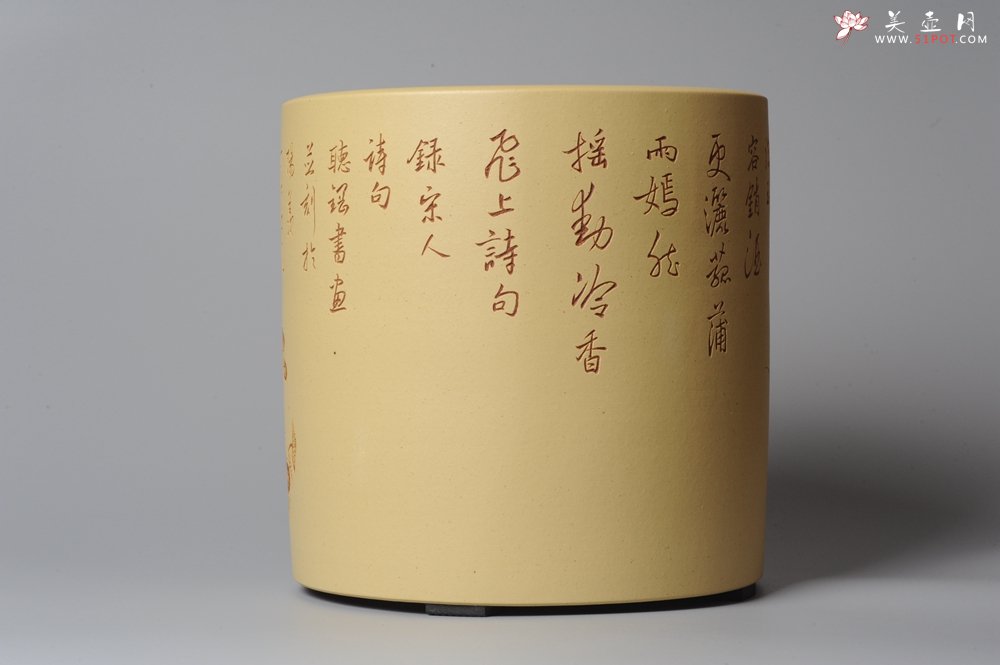 美壶网
WWW.51POT.COM
容銷酒
更灑菰蒲
雨嫣然
摇動冷香
飛上詩句
録宋人
詩句
聽 書画
並刻於
陽羡